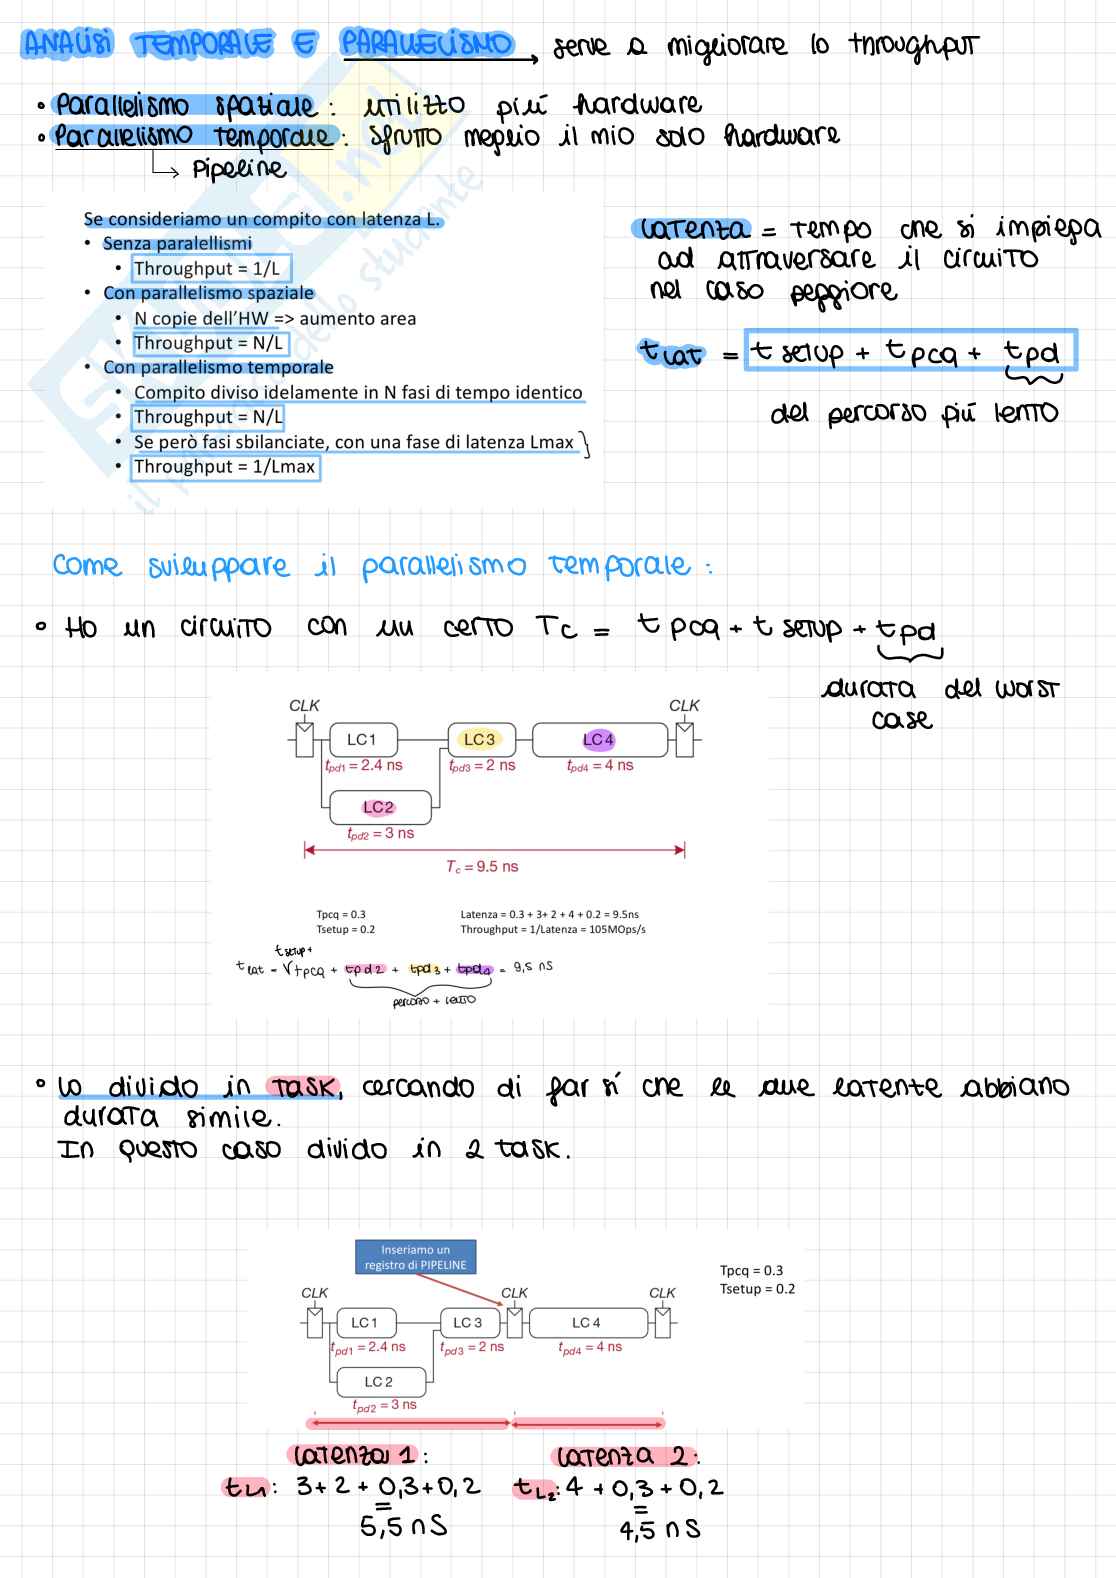 ANALISI TEMPORALE E PARALLELISMO → serve a migliorare lo throughput
• Parallelismo spaziale: utilizzo più hardware
• Parallelismo temporale: sfrutto meglio il mio solo hardware
→ Pipeline
Se consideriamo un compito con latenza L.
• Senza parallelismi
• Throughput = 1/L
• Con parallelismo spaziale
• N copie dell'HW => aumento area
• Throughput = N/L
• Con parallelismo temporale
• Compito diviso idelamente in N fasi di tempo identico
• Throughput = N/L
• Se però fasi sbilanciate, con una fase di latenza Lmax
• Throughput = 1/Lmax
Latenza = tempo che si impiega
ad attraversare il circuito
nel caso peggiore
t lat = t setup + t pcq + t pd
del percorso più lento
Come sviluppare il parallelismo temporale:
• Ho un circuito con un certo Tc = t pcq + t setup + t pd
durata del worst
case
CLK CLK
LC1 LC3 LC4
tpd1 = 2.4 ns tpd3 = 2 ns tpd4 = 4 ns
LC2
tpd2 = 3 ns
Tc = 9.5 ns
Tpcq = 0.3
Tsetup = 0.2
Latenza = 0.3 + 3+ 2 + 4 + 0.2 = 9.5ns
Throughput = 1/Latenza = 105MOps/s
t setup +
t lat = tpcq + tpd2 + tpd3 + tpd4 = 9,5 ns
percorso + lento
• Lo divido in TASK, cercando di far sì che le due latenze abbiano
durata simile.
In questo caso divido in 2 task.
Inseriamo un
registro di PIPELINE
Tpcq = 0.3
Tsetup = 0.2
CLK CLK CLK
LC1 LC3 LC4
tpd1 = 2.4 ns tpd3 = 2 ns tpd4 = 4 ns
LC2
tpd2 = 3 ns
Latenza 1:
tL1: 3+2+0,3+0,2
=
5,5 nS
Latenza 2:
tL2: 4+0,3+0,2
=
4,5 nS